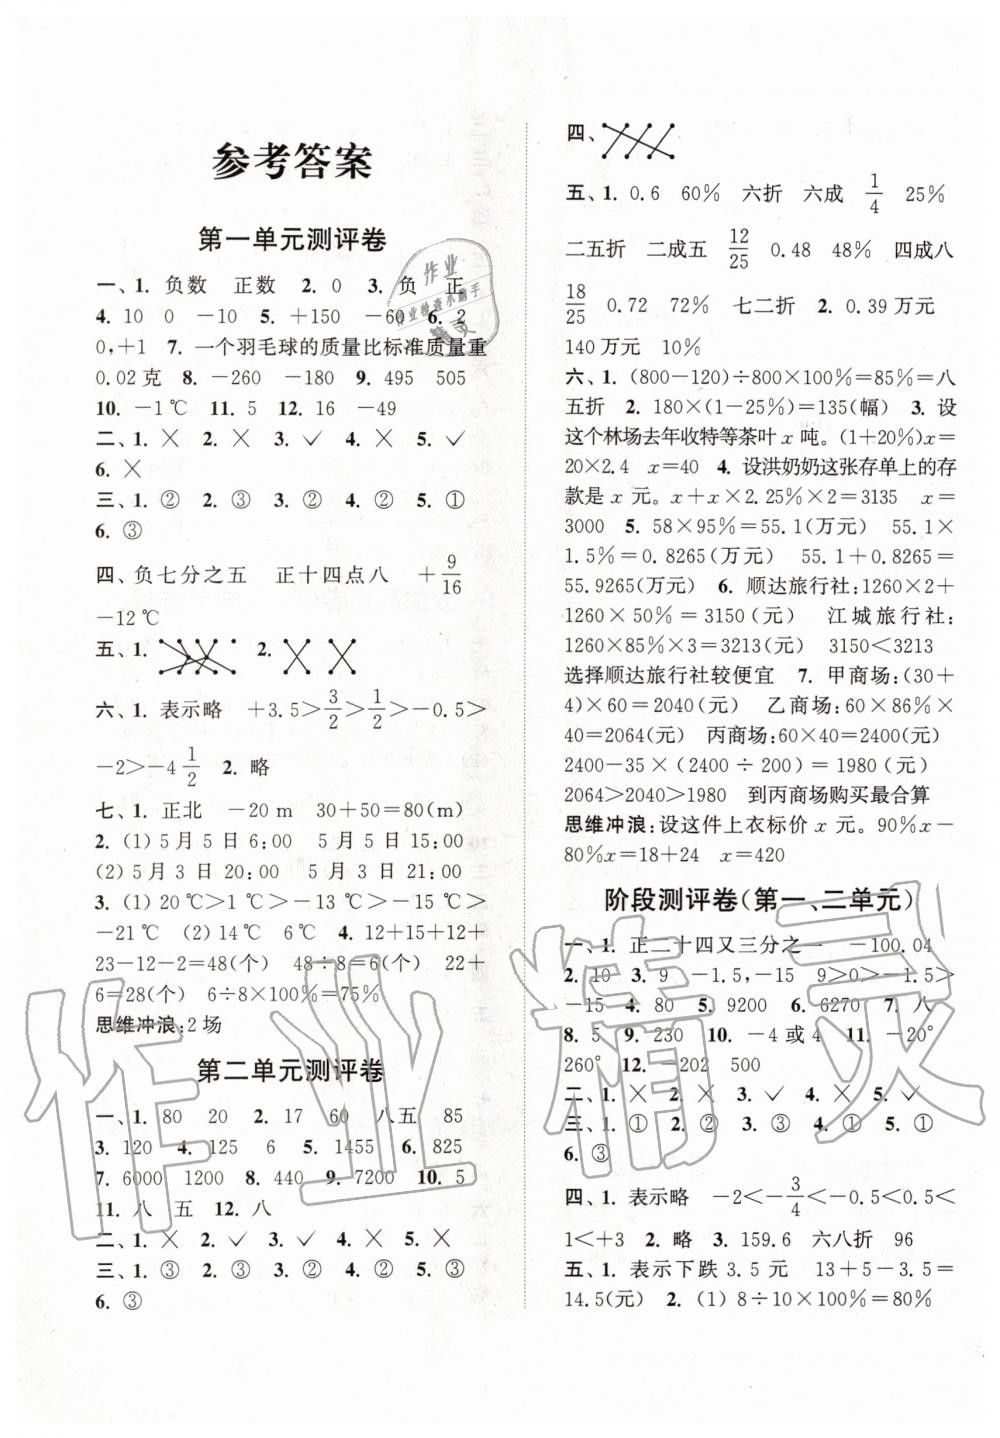 参考答案
第一单元测评卷
一、1. 负数 正数 2. 0 3. 负 正
4. 10 0 -10 5. +150 -60 6. 2
0,+1 7. 一个羽毛球的质量比标准质量重
0.02克 8. -260 -180 9. 495 505
10. -1℃ 11. 5 12. 16 -49
二、1. × 2. × 3. ✓ 4. × 5. ✓
6. ×
三、1. ② 2. ③ 3. ② 4. ② 5. ①
6. ③
四、负七分之五 正十四点八 +9/16
-12℃
五、1. 2.
六、1. 表示略 +3.5>3/2>1/2>-0.5>
-2>-4 1/2 2. 略
七、1. 正北 -20 m 30+50=80(m)
2. (1) 5月5日6:00 5月5日15:00
(2) 5月3日20:00 5月3日21:00
3. (1) 20℃>1℃>-3℃>-15℃>
-21℃ (2) 14℃ 6℃ 4. 12+15+12+
23-12-2=48(个) 48÷8=6(个) 22+
6=28(个) 6÷8×100%=75%
思维冲浪:2场
第二单元测评卷
一、1. 80 20 2. 17 60 八五 85
3. 120 4. 125 6 5. 1455 6. 825
7. 6000 1200 8. 440 9. 7200 10. 5
11. 八 五 12. 八
二、1. × 2. ✓ 3. ✓ 4. × 5. ×
三、1. ③ 2. ③ 3. ② 4. ② 5. ③
6. ③
四、
五、1. 0.6 60% 六折 六成 1/4 25%
二五折 二成五 12/25 0.48 48% 四成八
18/25 0.72 72% 七二折 2. 0.39万元
140万元 10%
六、1. (800-120)÷800×100%=85%=八
五折 2. 180×(1-25%)=135(幅) 3. 设
这个林场去年收特等茶叶x吨。(1+20%)x=
20×2.4 x=40 4. 设洪奶奶这张存单上的存
款是x元。x+x×2.25%×2=3135 x=
3000 5. 58×95%=55.1(万元) 55.1×
1.5%=0.8265(万元) 55.1+0.8265=
55.9265(万元) 6. 顺达旅行社:1260×2+
1260×50%=3150(元) 江城旅行社:
1260×85%×3=3213(元) 3150<3213
选择顺达旅行社较便宜 7. 甲商场:(30+
4)×60=2040(元) 乙商场:60×86%×
40=2064(元) 丙商场:60×40=2400(元)
2400-35×(2400÷200)=1980(元)
2064>2040>1980 到丙商场购买最合算
思维冲浪:设这件上衣标价x元。90%x-
80%x=18+24 x=420
阶段测评卷(第一、二单元)
一、1. 正二十四又三分之一 -100.04
2. 10 3. 9 -1.5,-15 9>0>-1.5>
-15 4. 80 5. 9200 6. 6270 7. 八
8. 5 9. 230 10. -4或4 11. -20°
260° 12. -202 500
二、1. × 2. × 3. ✓ 4. × 5. ✓
三、1. ① 2. ② 3. ③ 4. ① 5. ①
6. ③
四、1. 表示略 -2<-3/4<-0.5<0.5<
1<+3 2. 略 3. 159.6 六八折 96
五、1. 表示下跌3.5元 13+5-3.5=
14.5(元) 2. (1) 8÷10×100%=80%
作业精灵
作业
作业检查小助手
精灵